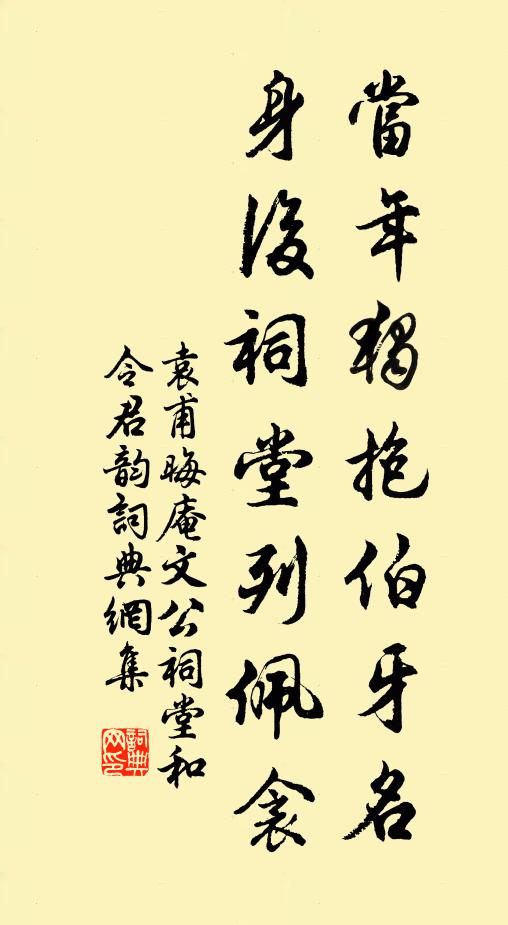 當年獨抱伯牙名
身後祠堂列佩衾
袁甫晦庵文公祠堂和
令君韵詞典網集
詞典
网印